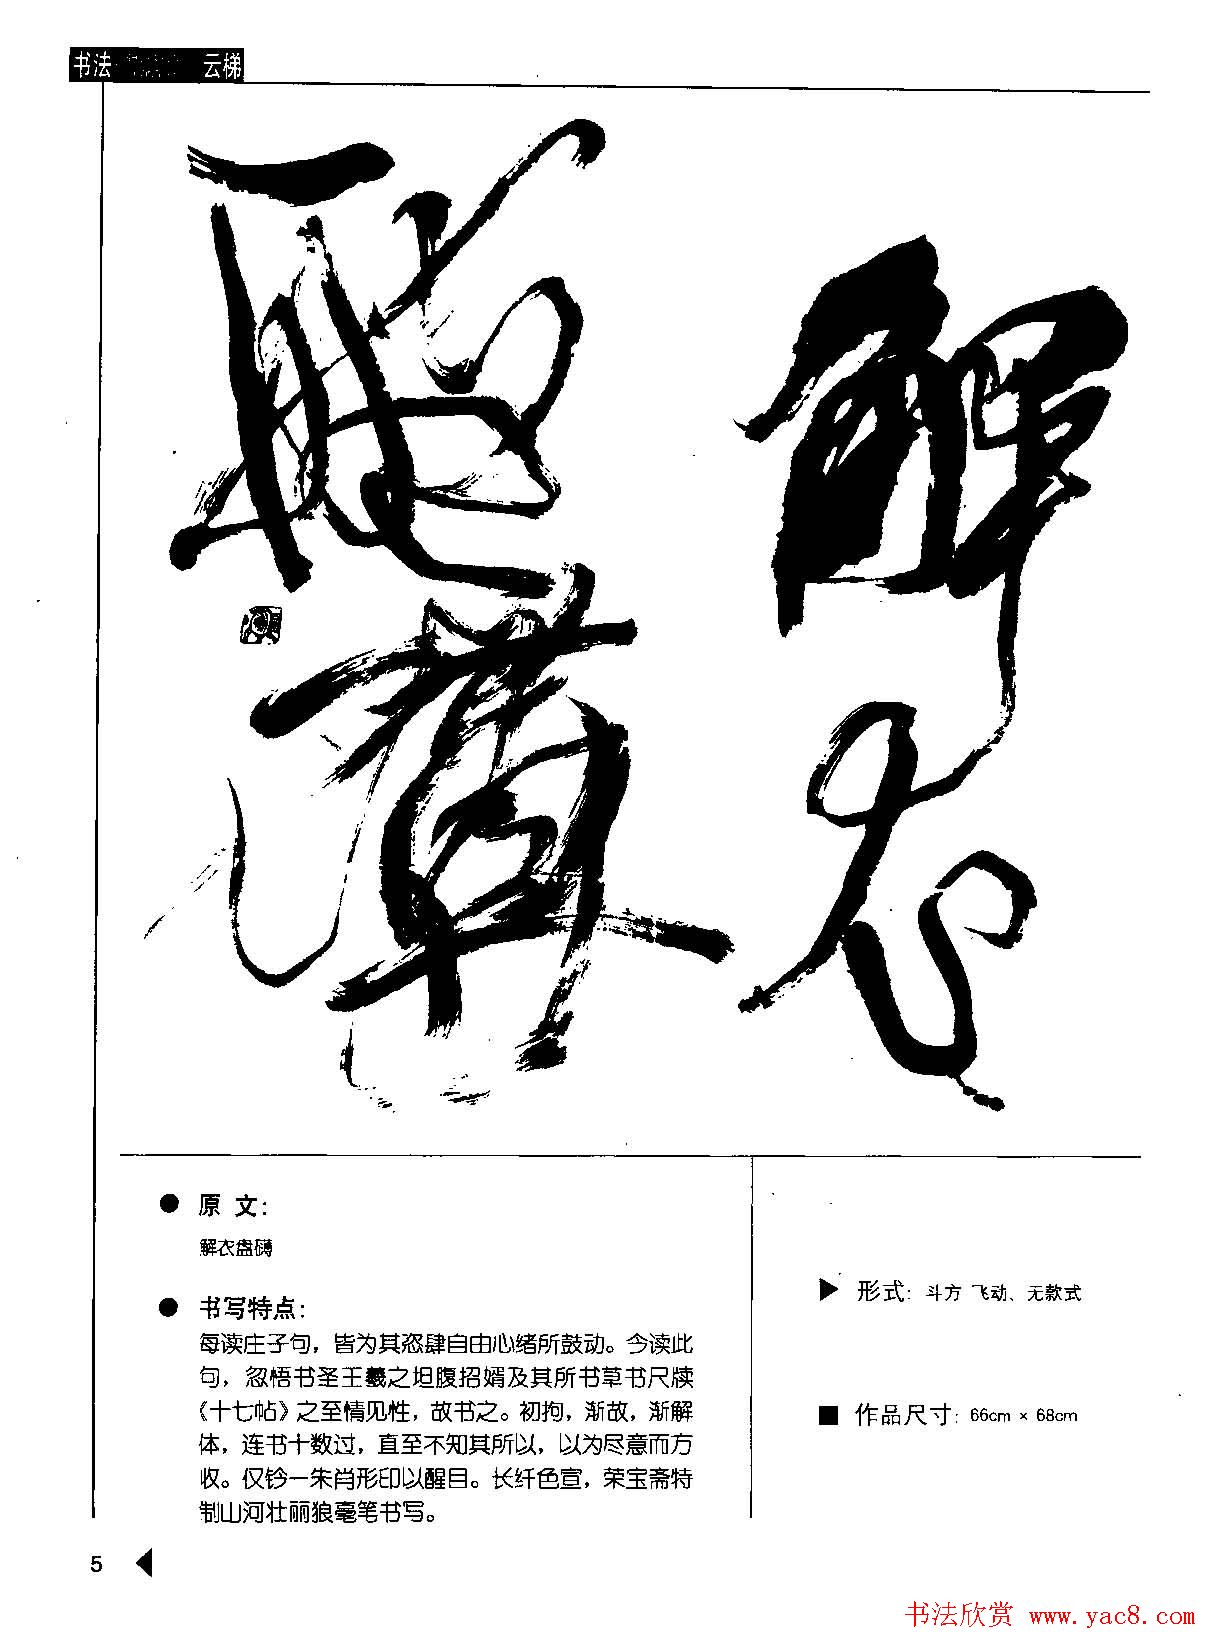 书法 云梯
解衣
盘礴
● 原 文:
解衣盘礴
● 书写特点:
每读庄子句，皆为其恣肆自由心绪所鼓动。今读此
句，忽悟书圣王羲之坦腹招婿及其所书草书尺牍
《十七帖》之至情见性，故书之。初拘，渐放，渐解
体，连书十数过，直至不知其所以，以为尽意而方
收。仅钤一朱肖形印以醒目。长纤色宣，荣宝斋特
制山河壮丽狼毫笔书写。
▶ 形式: 斗方 飞动、无款式
■ 作品尺寸: 66cm × 68cm
5 ◀
书法欣赏 www.yac8.com